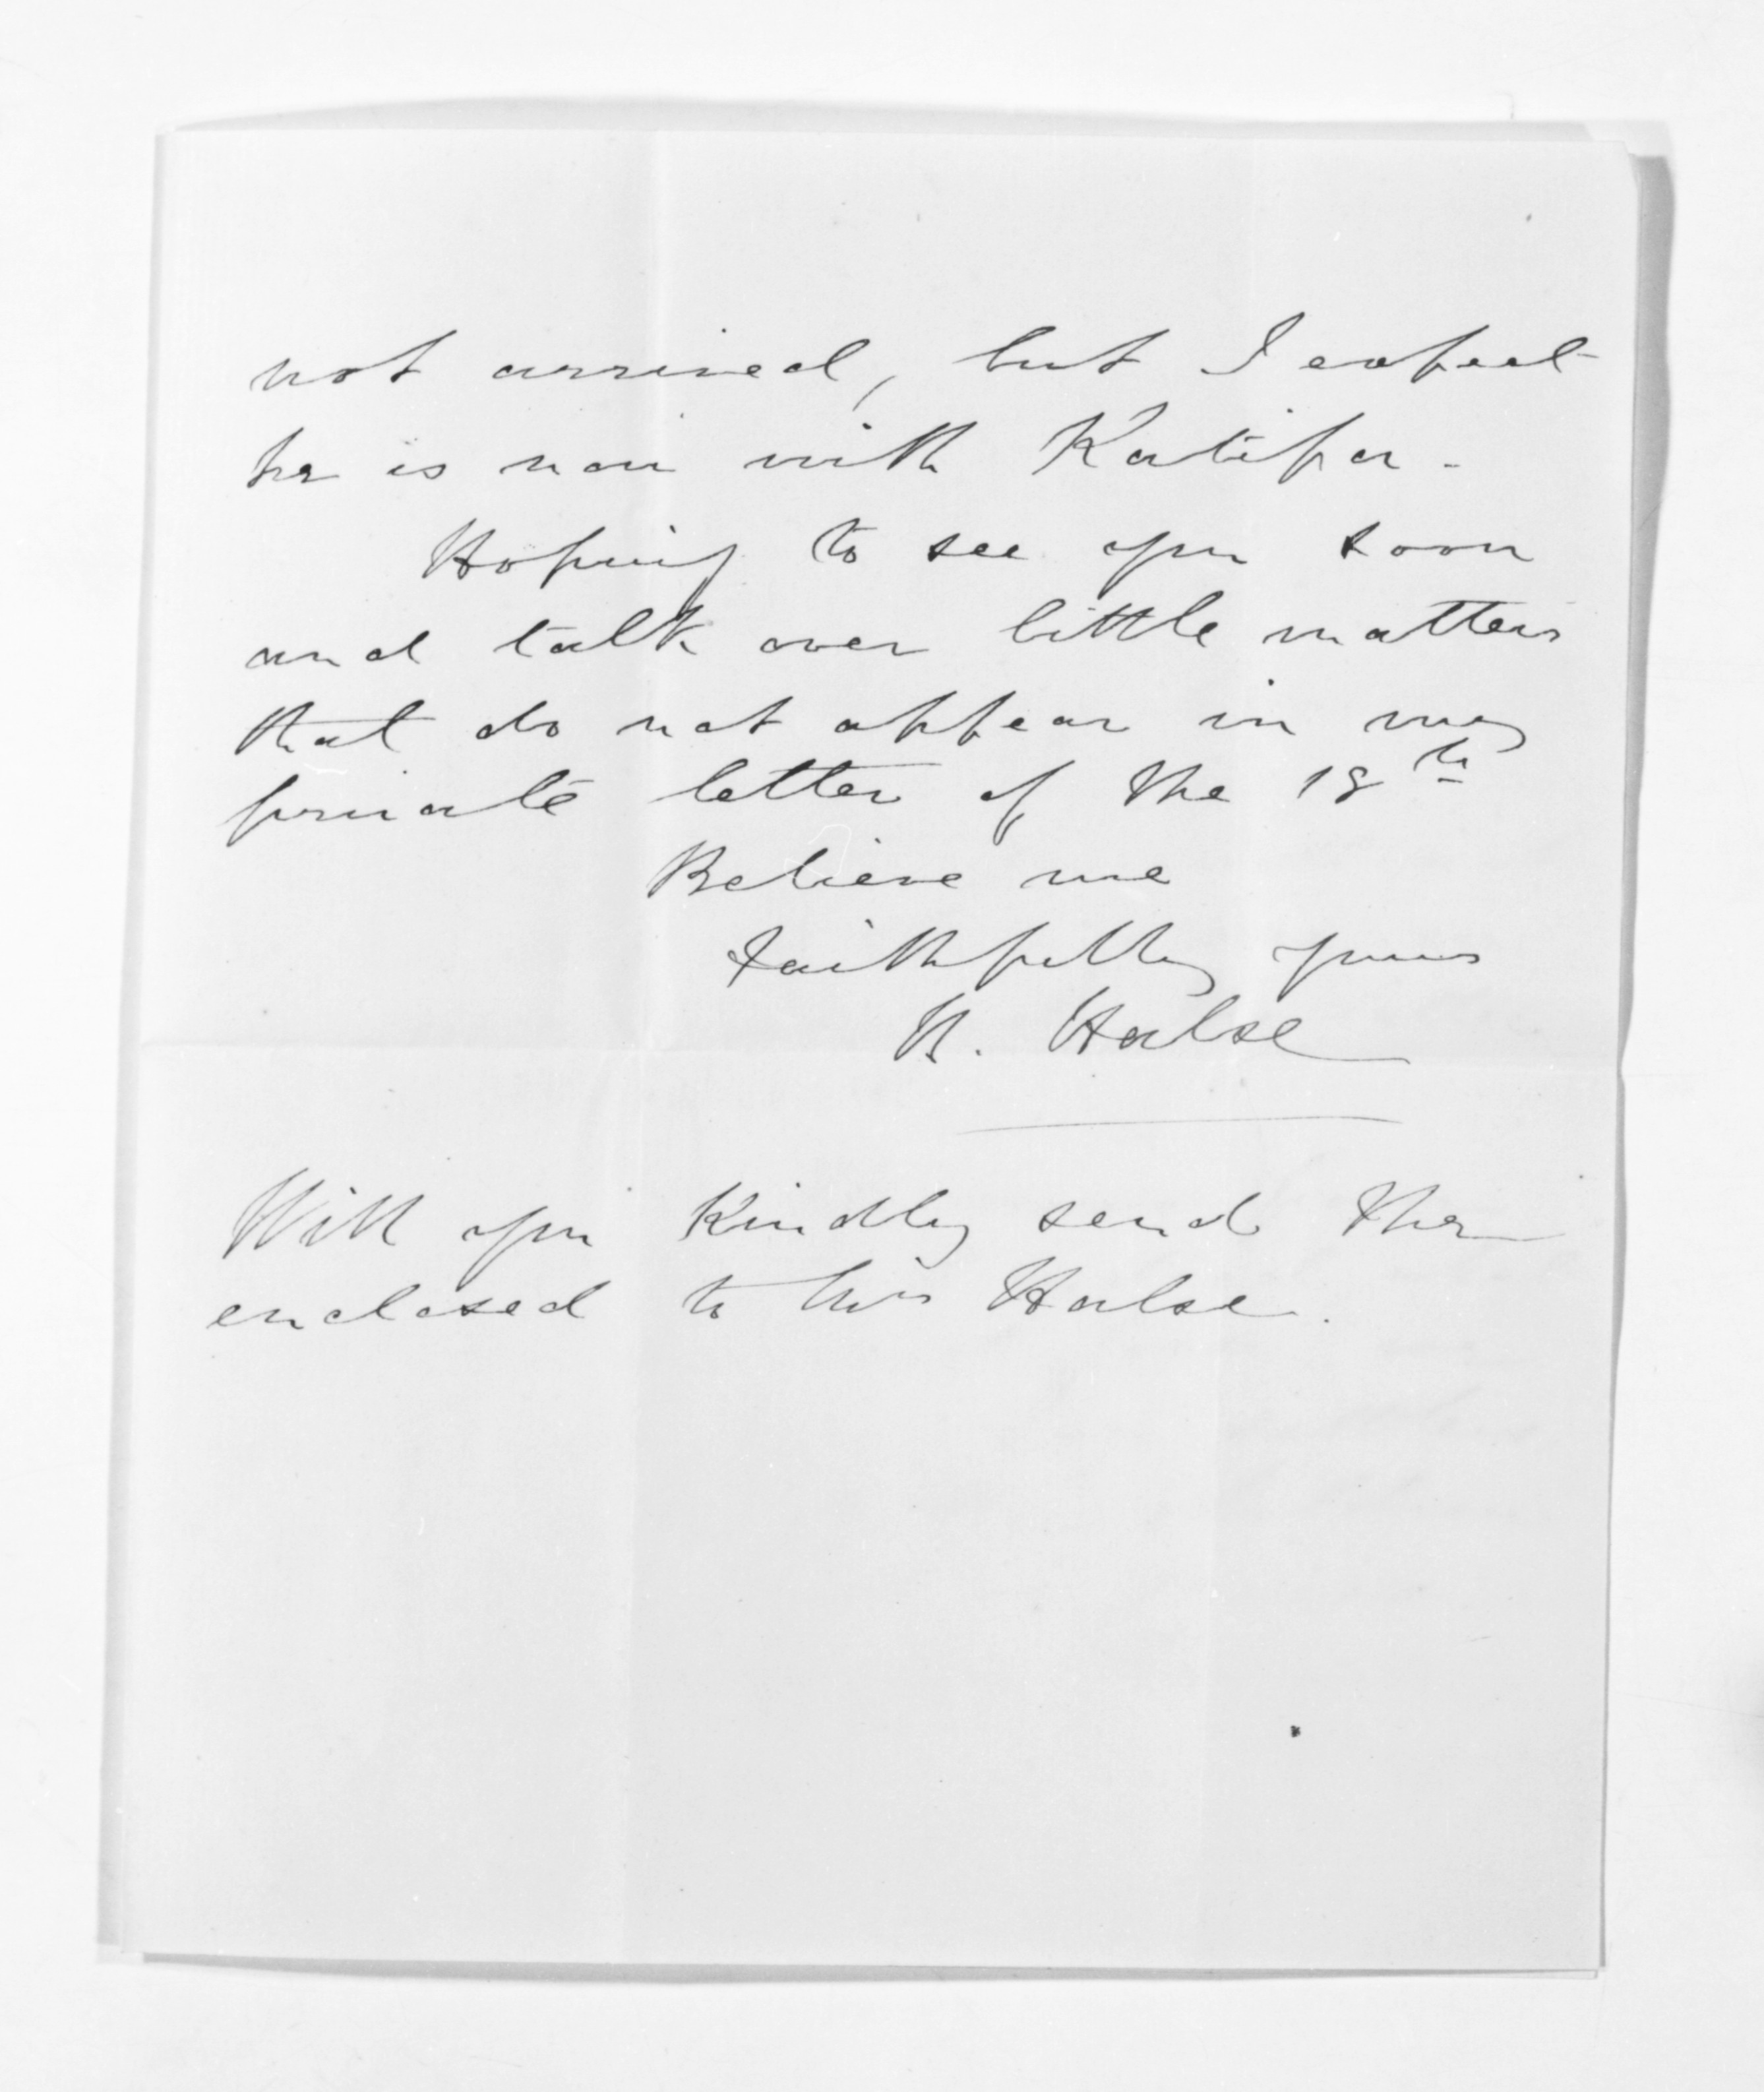 not arrived, but I expect
he is now with Katipa -
Hoping to see you soon
and talk over little matters
that do not appear in my
private letter of the 18th
Believe me
Faithfully yours
H. Halse
Will you kindly send the
enclosed to Mrs Halse.